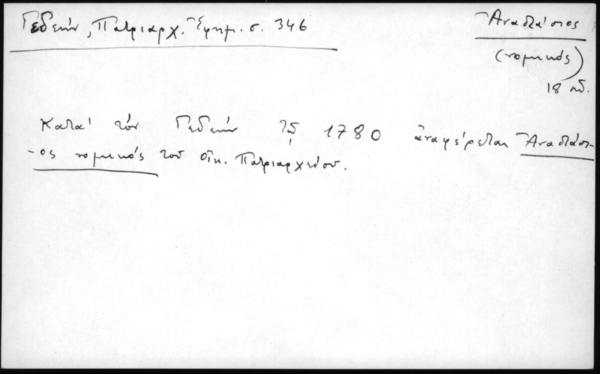 Γεδεών, Πατριαρχ. Ἐφημ. σ. 346
Ἀναστάσιος
(νομικός)
18 αἰ.
Κατά τόν Γεδεών τῷ 1780 ἀναφέρεται Ἀναστάσι-
-ος νομικός τοῦ Οἰκ. Πατριαρχείου.